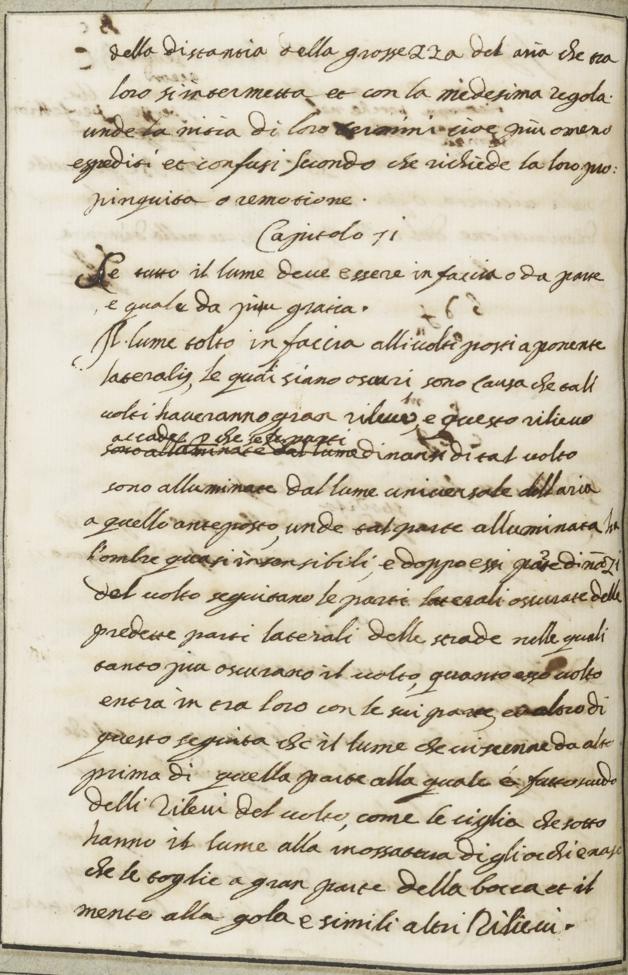 della distantia della grossezza del aria che tra
loro s'intermetta et con la medesima regola
unde la nitia di loro termini cioe più o meno
espediti et confusi secondo che richiede la loro pro:
pinquita o remotione.
Capitolo 71
Se tutto il lume deve essere in faccia o da parte
e quale da più gratia.
Il lume tolto in faccia alli volti posti a ponente
laterali, le quai siano oscuri sono causa che tali
volti haveranno gran rilievo, e questo rilievo
accade p che le parti
dinanzi di tal volto
sono alluminate dal lume universale dell aria
a quello anteposto, unde tal parte alluminata ha
l'ombre quasi insensibili, e doppo essi parte dinãzi
del volto seguitano le parti laterali oscurate delle
predette parti laterali delle strade nelle quali
tanto più oscurano il volto, quanto esso volto
entra in tra loro con le sui parte, et altro di
questo seguita che il lume che vi scenne da alto
prima di quella parte alla quale é fatto scudo
delli Rilevi del volto, come le ciglia che sotto
hanno il lume alla inossattura di gli occhi e naso
che le toglie a gran parte della bocca et il
mento alla gola e simili altri Rilievi.